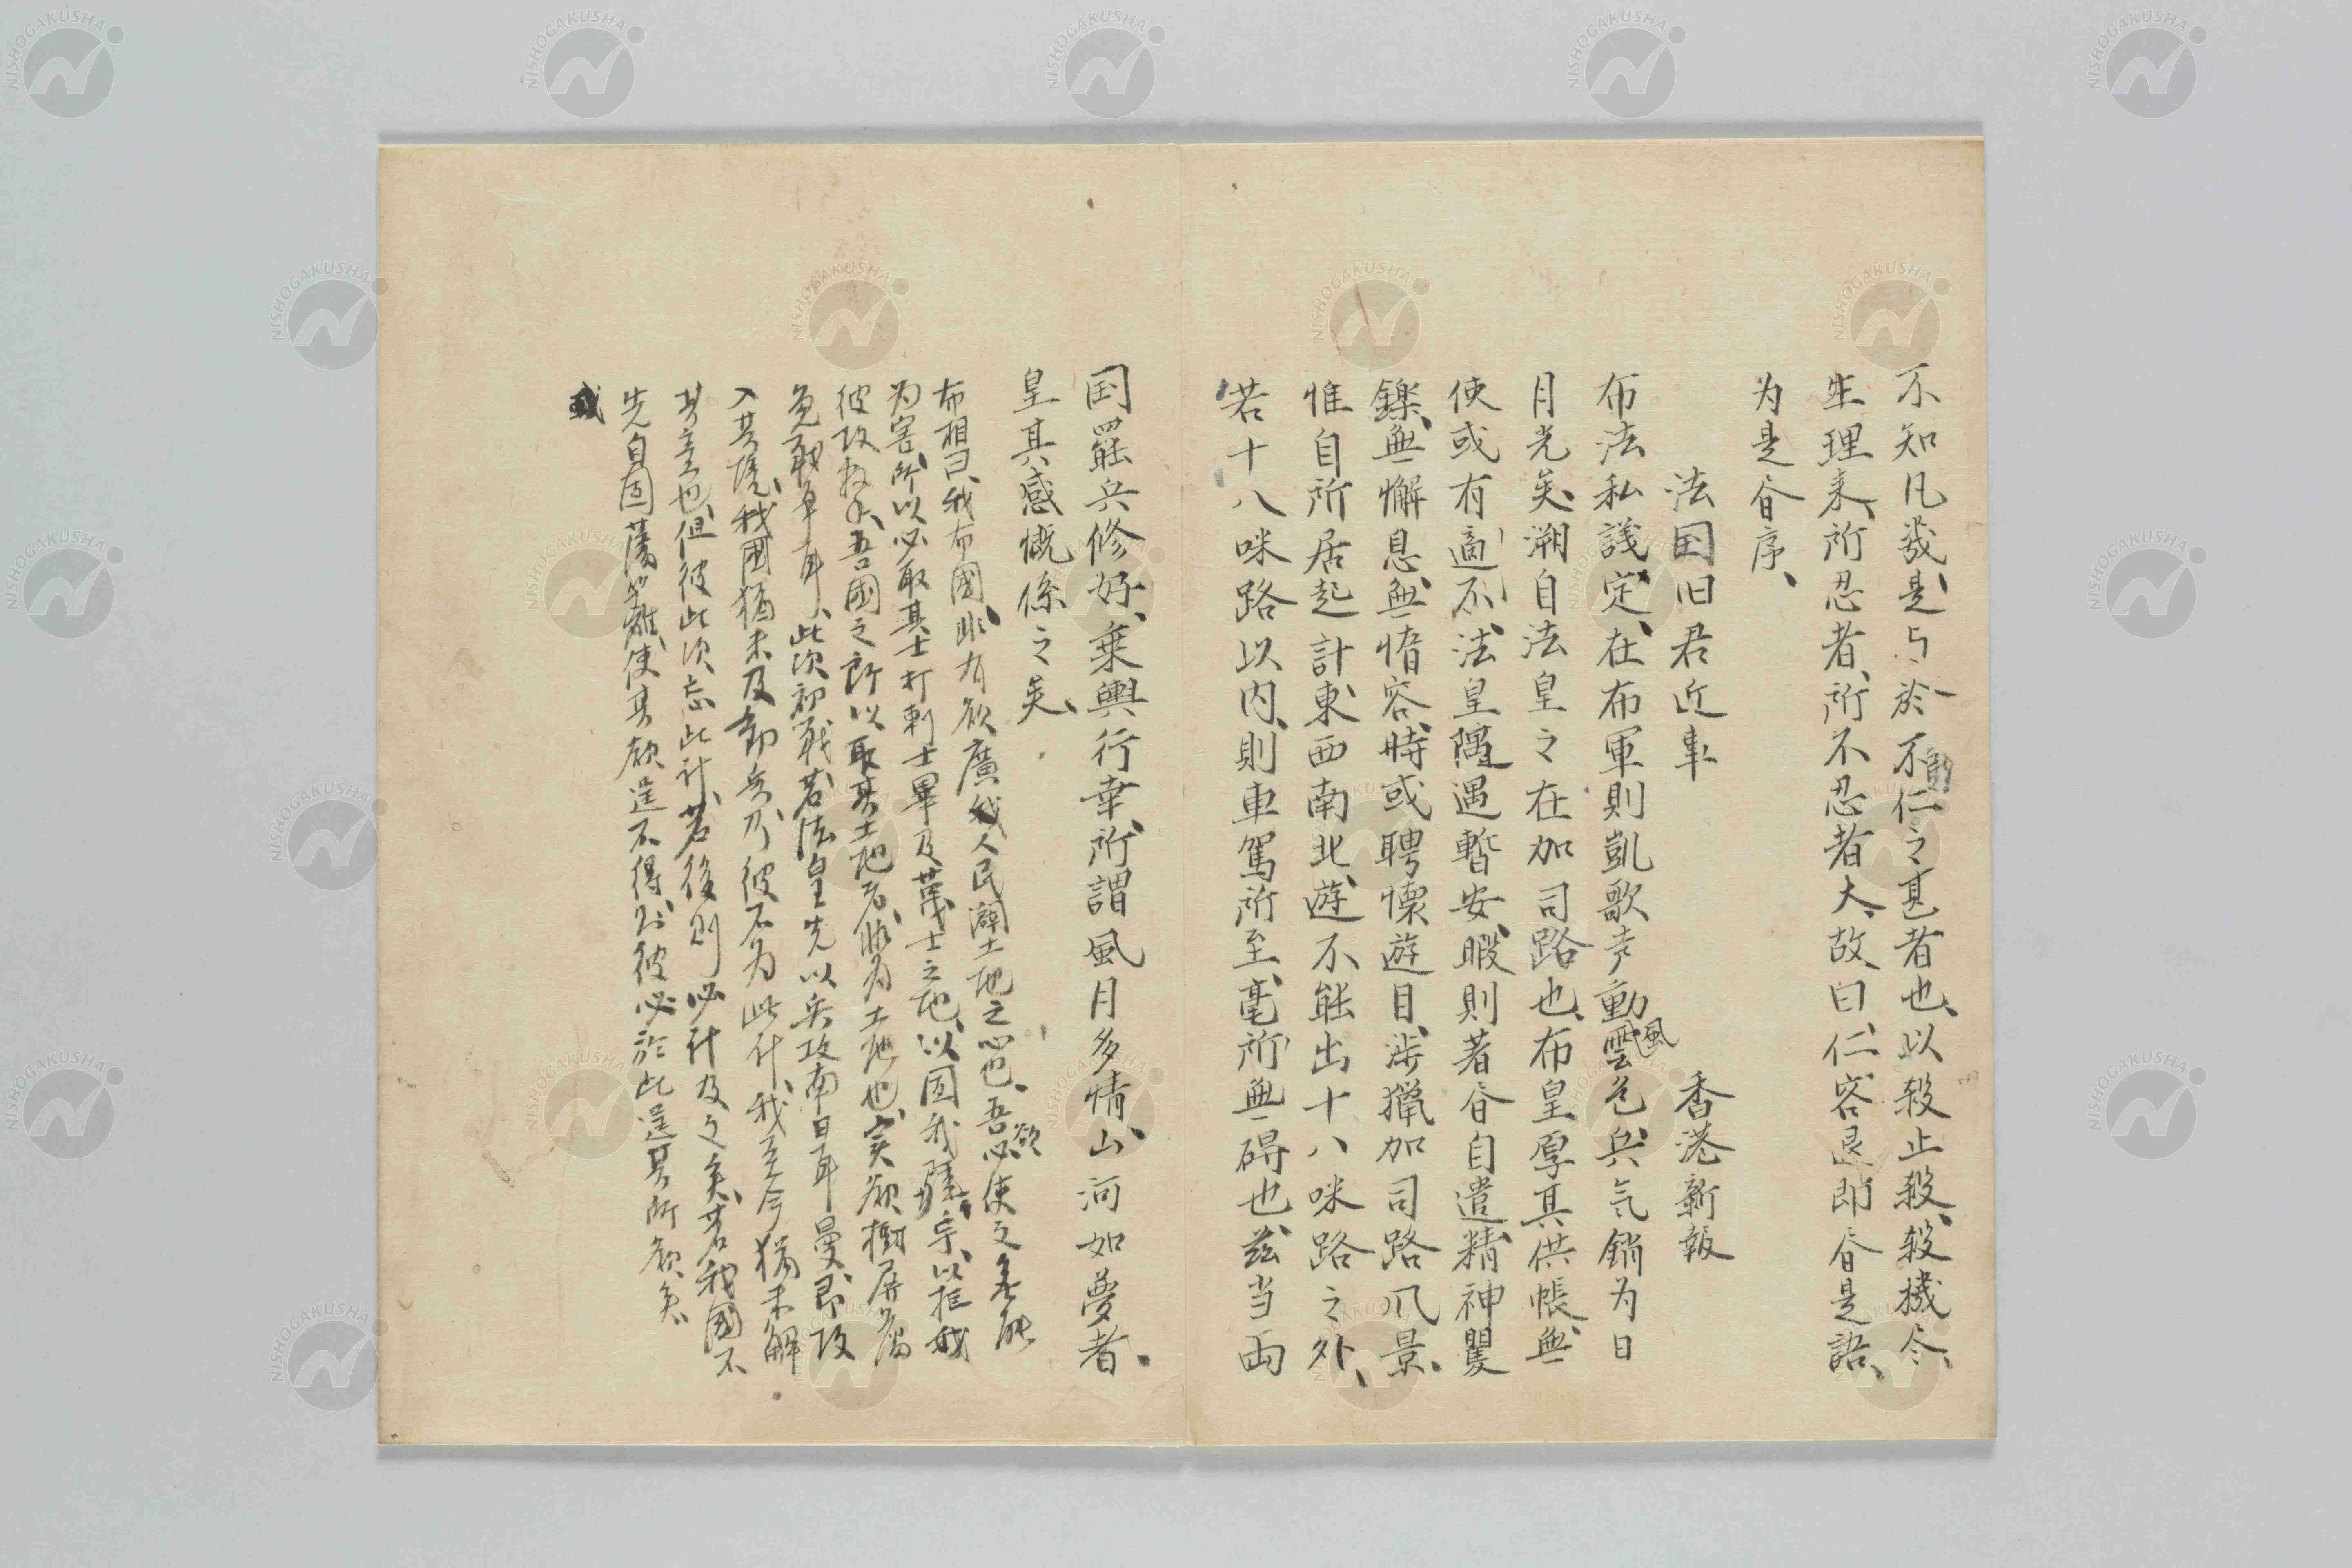 不知凡發是与於不仁之甚者也、以殺止殺、殺機令、
生理来、所忍者、所不忍者大、故曰、仁、容退即昏是語、
为是昏序、
法国旧君近事 香港新報
布法私議定、在布軍則凱歌声動風雲色兵気銷为日
月光矣、溯自法皇之在加司路也、布皇厚其供帳、無
使或有適不、法皇隅遇暫安、暇則著昏自遣、精神矍
鑠、無懈息、無惰容、時或聘懐遊目、渉獵加司路风景、
惟自所居起計、東西南北、遊不能出十八咪路之外、
若十八咪路以内、則車駕所至、毫所無碍也、茲当両
国罷兵修好、乗輿行幸、所謂風月多情、山河如夢者、
皇其感慨係之矣、
布相曰、我布國、非有欲廣我人民闢土地之心也、吾欲必使之無能
为害、所以必取其士打剌士畢及蔑士之地、以固我宗、以拒我
彼攻我、吾國之所以取其土地者、非为土地也、実欲樹屏藩
免戰争耳、此次初戰若法皇先以兵攻南日耳曼、即攻
入其境、我國猶未及動兵、乃彼不为此計、我至今猶未解
其意也、但彼此次忘此計、若後則必計及之矣、若我國不
先自固藩籬、使其欲逞不得、則彼必於此逞其所欲矣、